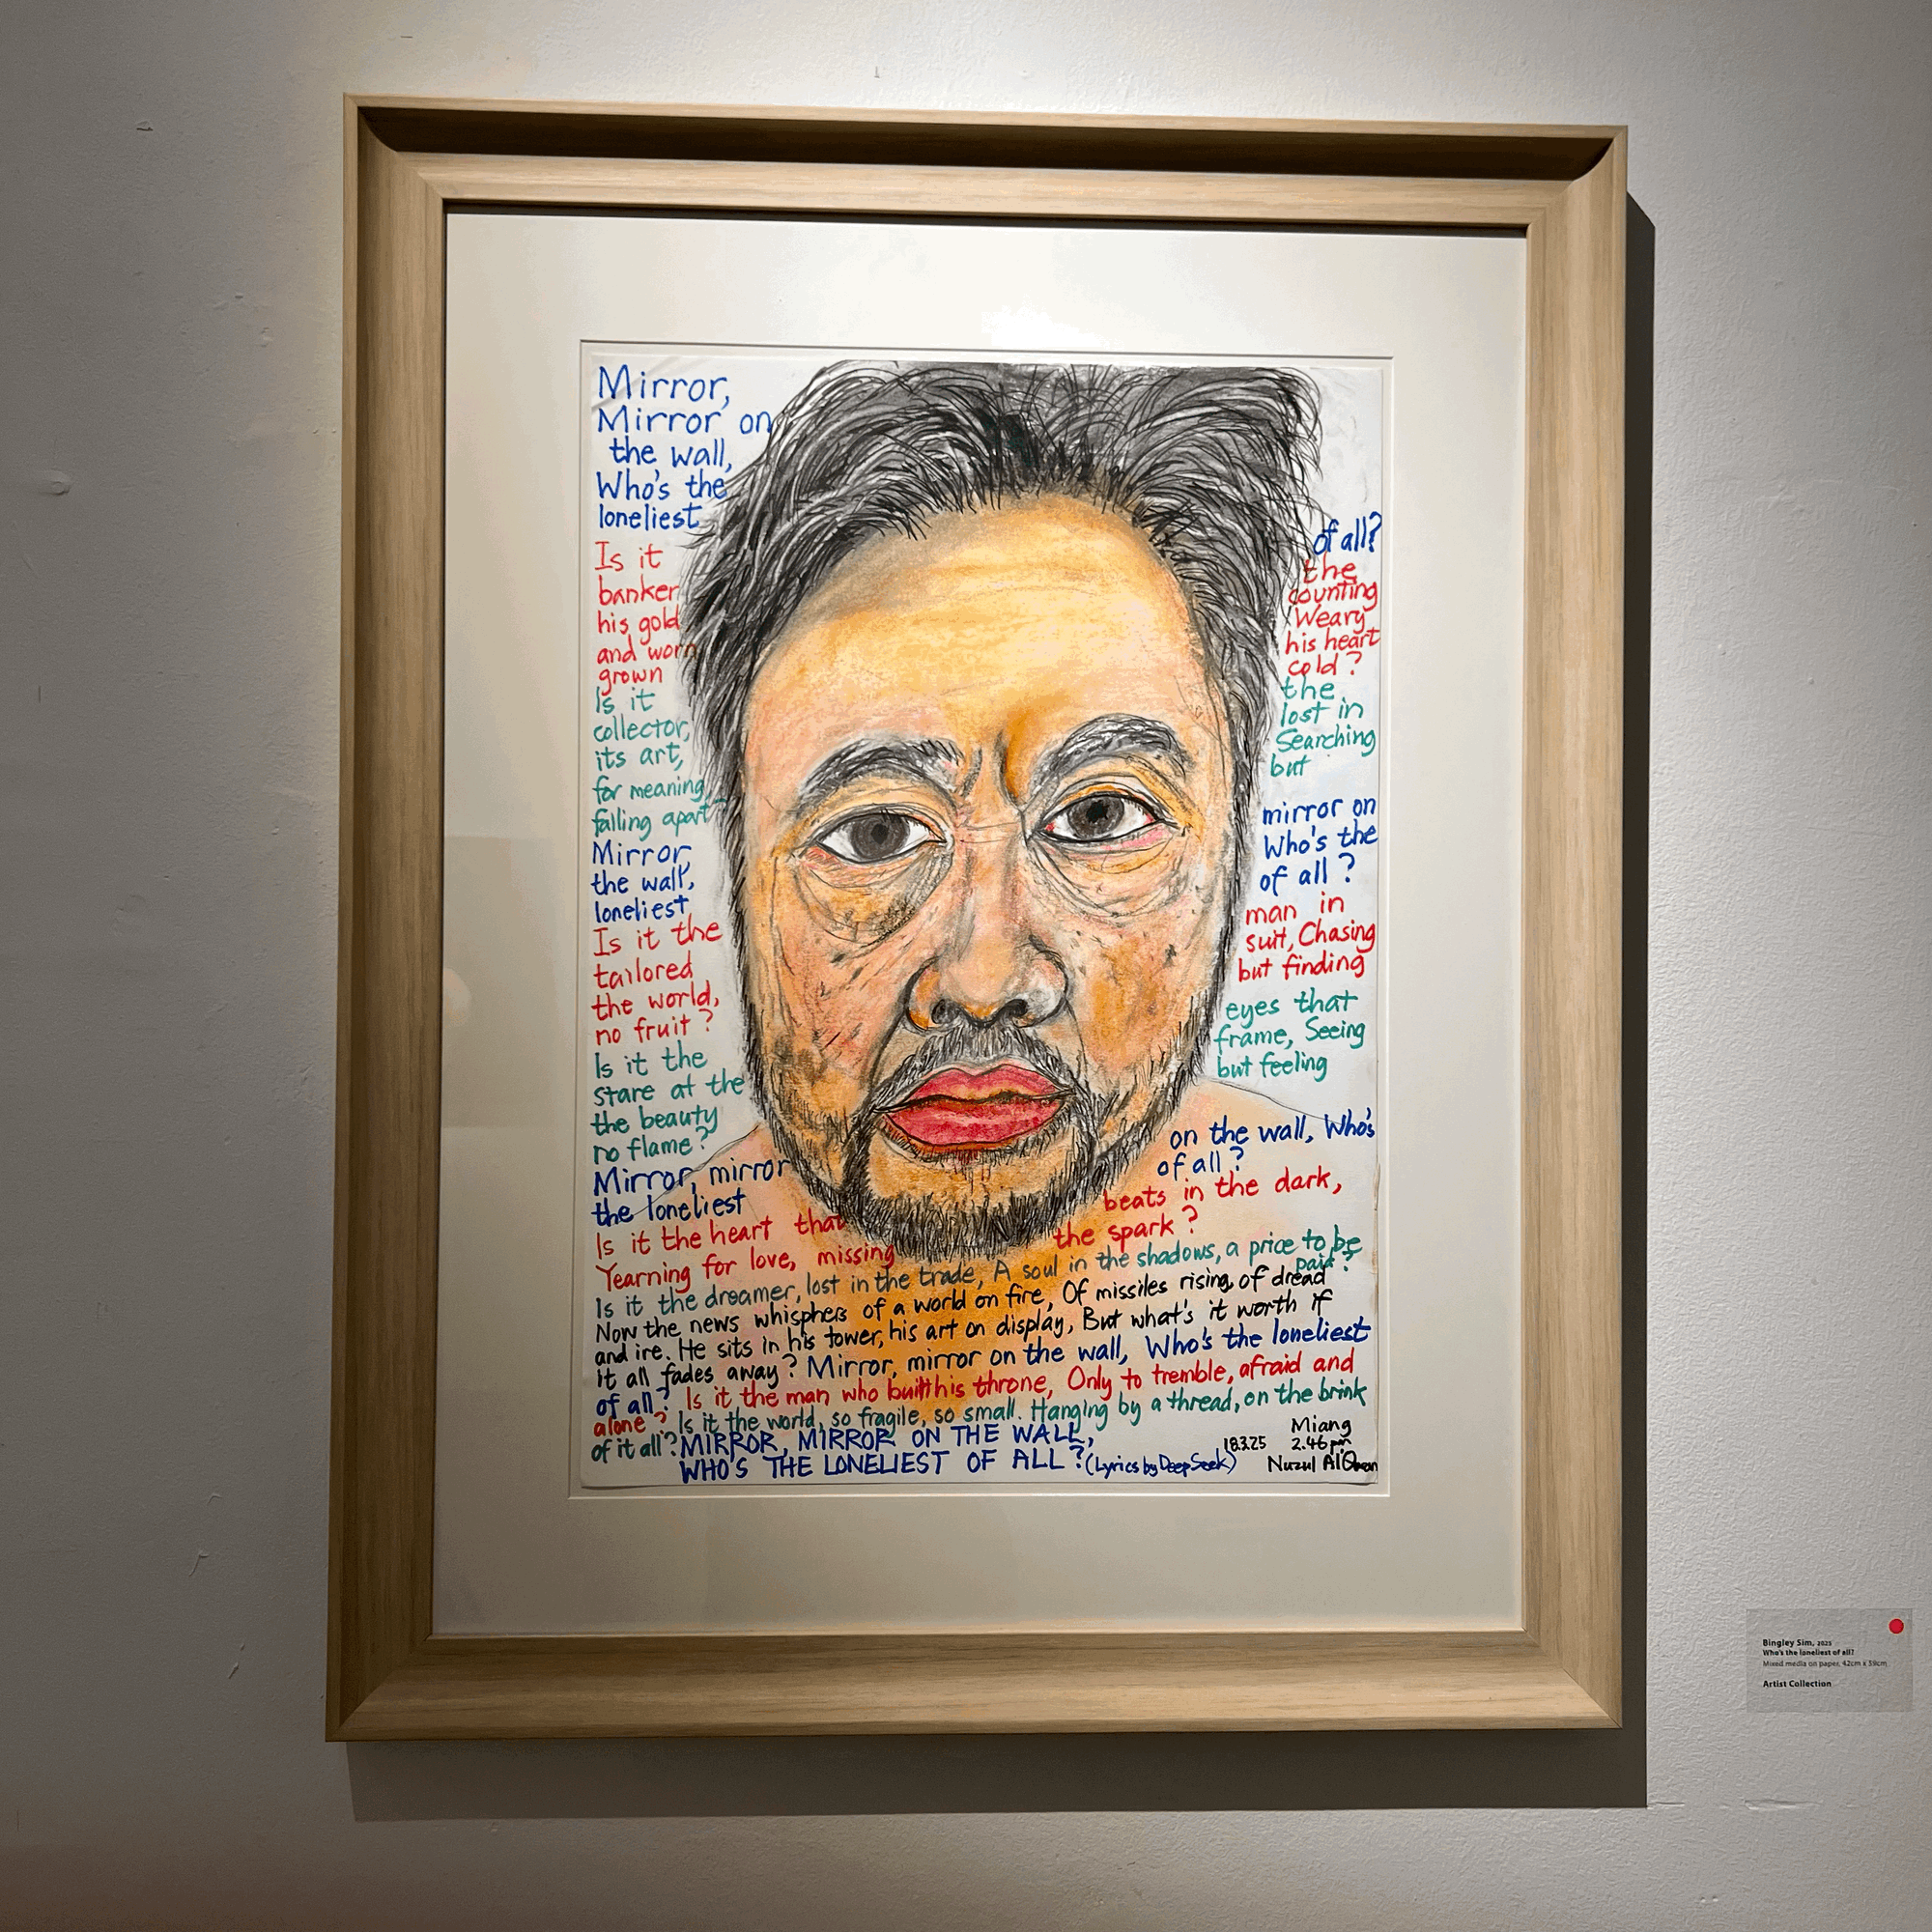 Mirror,
Mirror on
the wall,
Who's the
loneliest of all?
Is it the
banker counting
his gold Weary
and worn his heart
grown cold?
Is it the
collector, lost in
its art, Searching
for meaning but
falling apart?
Mirror, mirror on
the wall, Who's the
loneliest of all?
Is it the man in
tailored suit, Chasing
the world, but finding
no fruit?
Is it the eyes that
stare at the frame, Seeing
the beauty but feeling
no flame?
Mirror, mirror on the wall, Who's
the loneliest of all?
Is it the heart that beats in the dark,
Yearning for love, missing the spark?
Is it the dreamer, lost in the trade, A soul in the shadows, a price to be
paid?
Now the news whisphers of a world on fire, Of missiles rising, of dread
and ire. He sits in his tower, his art on display, But what's it worth if
it all fades away? Mirror, mirror on the wall, Who's the loneliest
of all? Is it the man who built his throne, Only to tremble, afraid and
alone? Is it the world, so fragile, so small. Hanging by a thread, on the brink
of it all? MIRROR, MIRROR ON THE WALL,
WHO'S THE LONELIEST OF ALL? (Lyrics by DeepSeek)
Miang
18.3.25 2.46 pm
Nuzul Al Quran
Bingley Sim, 2025
Who's the loneliest of all?
Mixed media on paper, 42cm x 59cm
Artist Collection